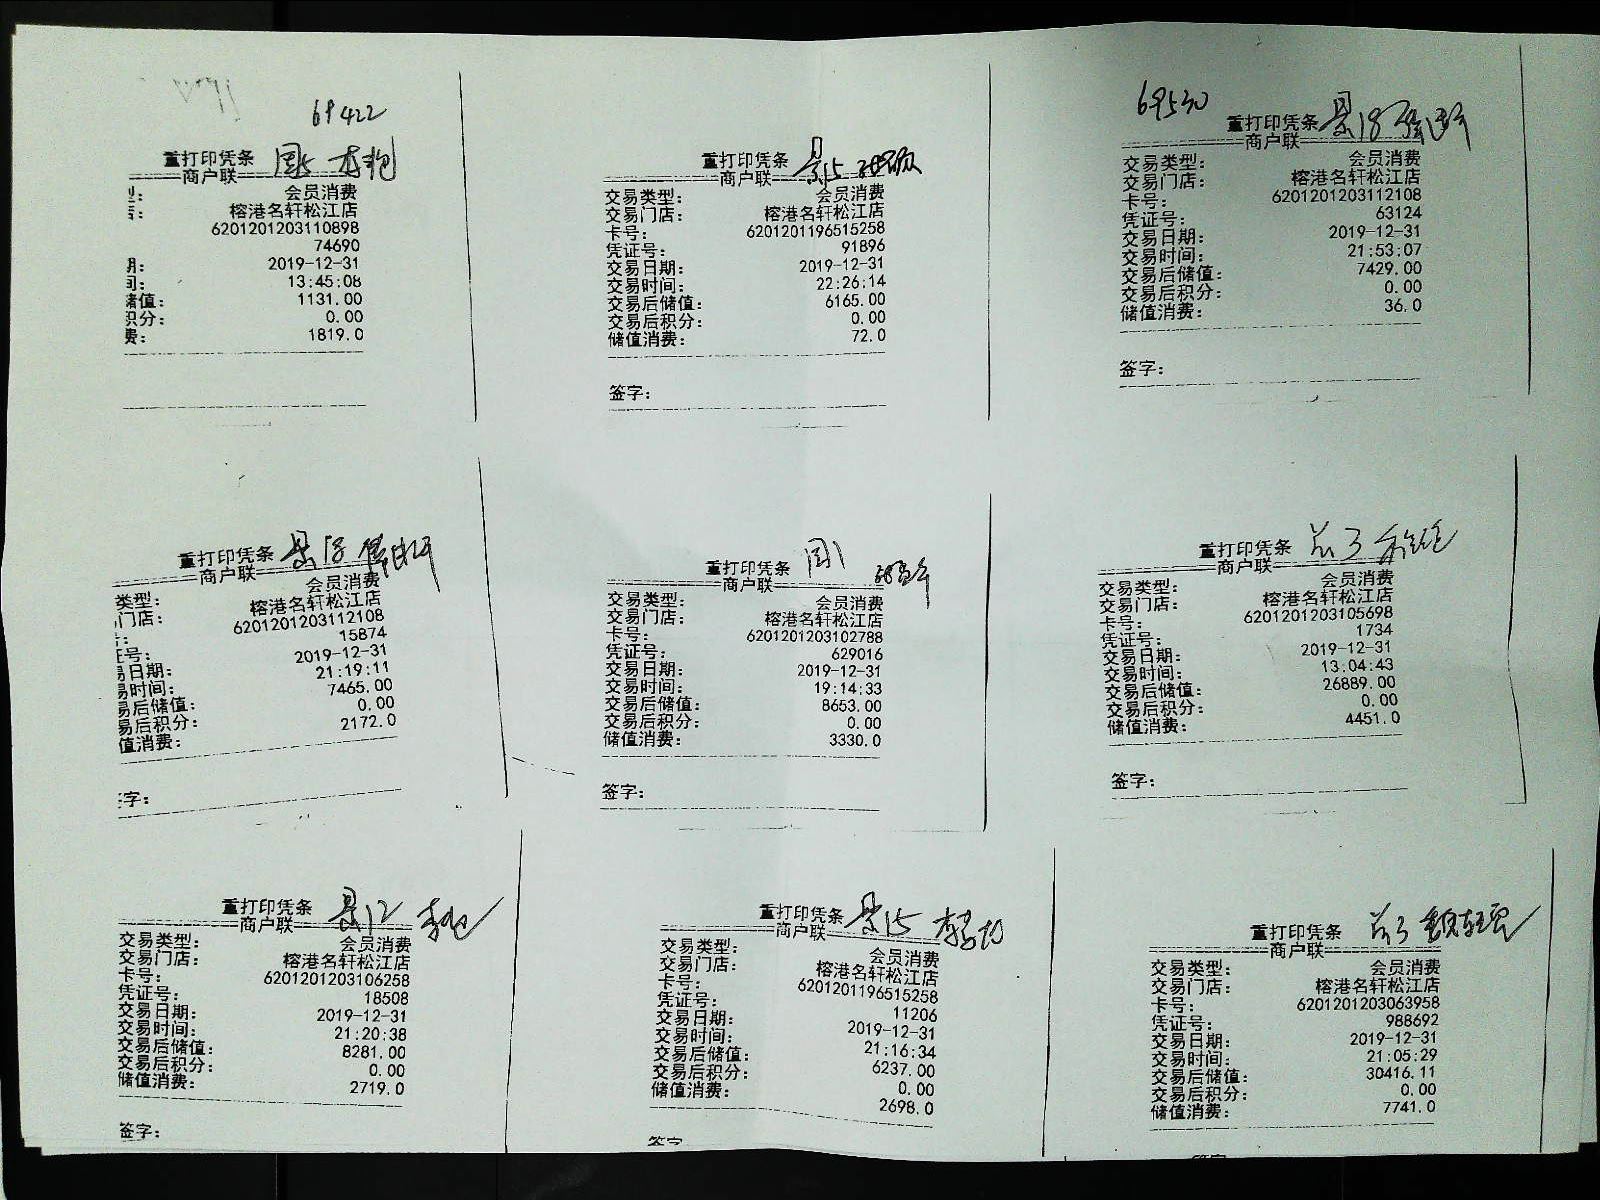 69422
重打印凭条
商户联
型: 会员消费
店: 榕港名轩松江店
6201201203110898
74690
期: 2019-12-31
间: 13:45:08
储值: 1131.00
积分: 0.00
费: 1819.0
重打印凭条 景15
商户联
交易类型: 会员消费
交易门店: 榕港名轩松江店
卡号: 6201201196515258
凭证号: 91896
交易日期: 2019-12-31
交易时间: 22:26:14
交易后储值: 6165.00
交易后积分: 0.00
储值消费: 72.0
签字:
69530
重打印凭条 景18
商户联
交易类型: 会员消费
交易门店: 榕港名轩松江店
卡号: 6201201203112108
凭证号: 63124
交易日期: 2019-12-31
交易时间: 21:53:07
交易后储值: 7429.00
交易后积分: 0.00
储值消费: 36.0
签字:
重打印凭条 景18
商户联
类型: 会员消费
门店: 榕港名轩松江店
号: 6201201203112108
证号: 15874
易日期: 2019-12-31
易时间: 21:19:11
易后储值: 7465.00
易后积分: 0.00
值消费: 2172.0
字:
重打印凭条
商户联
交易类型: 会员消费
交易门店: 榕港名轩松江店
卡号: 6201201203102788
凭证号: 629016
交易日期: 2019-12-31
交易时间: 19:14:33
交易后储值: 8653.00
交易后积分: 0.00
储值消费: 3330.0
签字:
重打印凭条
商户联
交易类型: 会员消费
交易门店: 榕港名轩松江店
卡号: 6201201203105698
凭证号: 1734
交易日期: 2019-12-31
交易时间: 13:04:43
交易后储值: 26889.00
交易后积分: 0.00
储值消费: 4451.0
签字:
重打印凭条 景12
商户联
交易类型: 会员消费
交易门店: 榕港名轩松江店
卡号: 6201201203106258
凭证号: 18508
交易日期: 2019-12-31
交易时间: 21:20:38
交易后储值: 8281.00
交易后积分: 0.00
储值消费: 2719.0
签字:
重打印凭条 景15
商户联
交易类型: 会员消费
交易门店: 榕港名轩松江店
卡号: 6201201196515258
凭证号: 11206
交易日期: 2019-12-31
交易时间: 21:16:34
交易后储值: 6237.00
交易后积分: 0.00
储值消费: 2698.0
签字
重打印凭条
商户联
交易类型: 会员消费
交易门店: 榕港名轩松江店
卡号: 6201201203063958
凭证号: 988692
交易日期: 2019-12-31
交易时间: 21:05:29
交易后储值: 30416.11
交易后积分: 0.00
储值消费: 7741.0